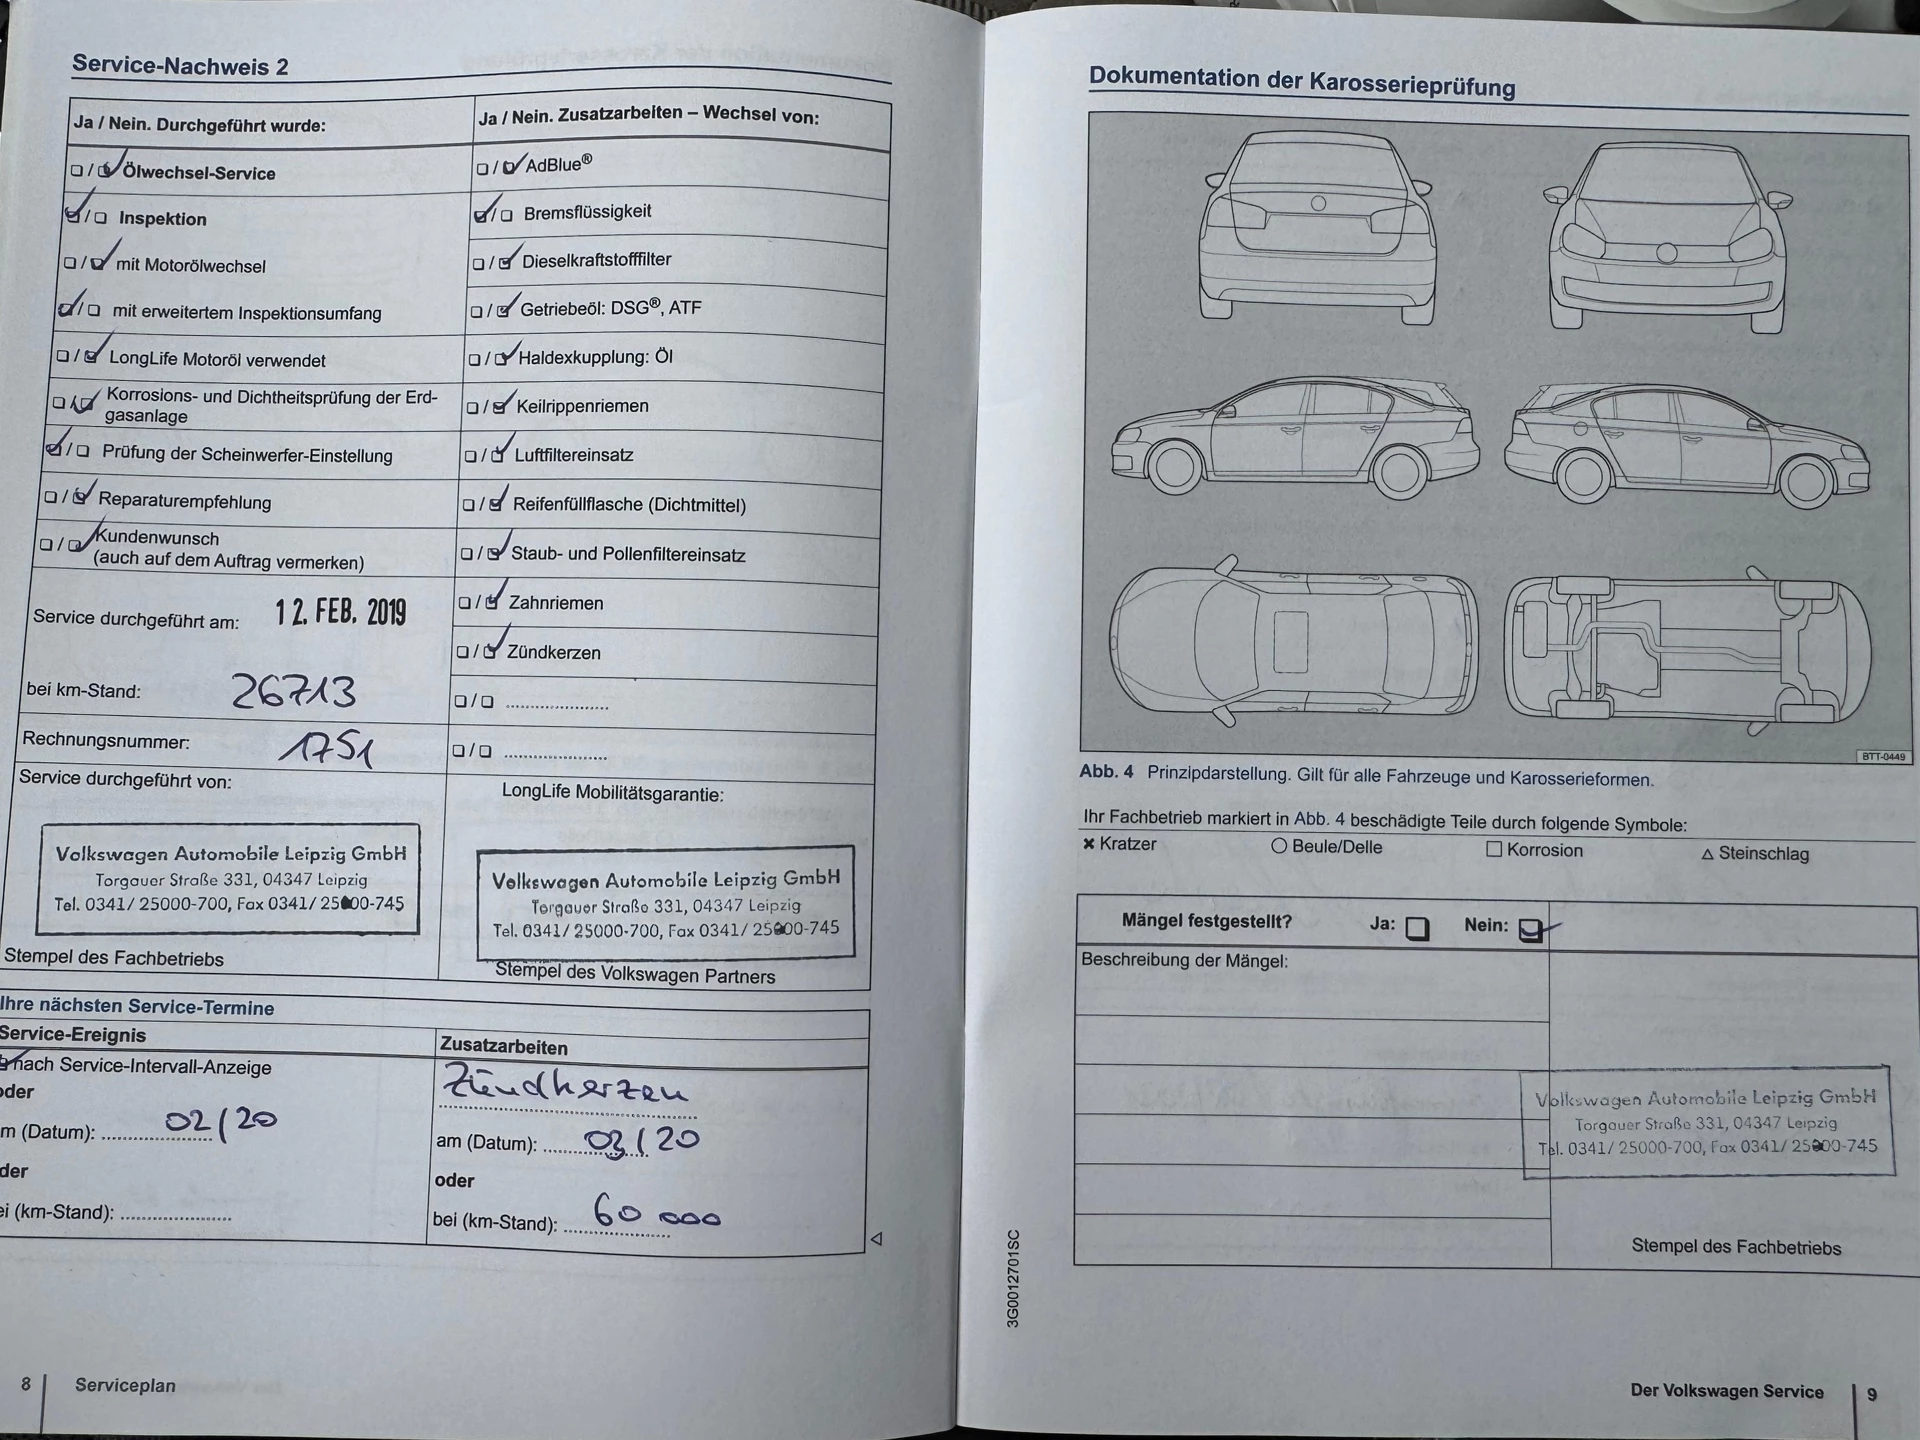 Service-Nachweis 2
Ja / Nein. Durchgeführt wurde:
Ölwechsel-Service
Inspektion
mit Motorölwechsel
mit erweitertem Inspektionsumfang
LongLife Motoröl verwendet
Korrosions- und Dichtheitsprüfung der Erd-
gasanlage
Prüfung der Scheinwerfer-Einstellung
Reparaturempfehlung
Kundenwunsch
(auch auf dem Auftrag vermerken)
Service durchgeführt am: 12. FEB. 2019
bei km-Stand: 26713
Rechnungsnummer: 1751
Service durchgeführt von:
Volkswagen Automobile Leipzig GmbH
Torgauer Straße 331, 04347 Leipzig
Tel. 0341/ 25000-700, Fax 0341/ 25000-745
Stempel des Fachbetriebs
Ja / Nein. Zusatzarbeiten – Wechsel von:
AdBlue®
Bremsflüssigkeit
Dieselkraftstofffilter
Getriebeöl: DSG®, ATF
Haldexkupplung: Öl
Keilrippenriemen
Luftfiltereinsatz
Reifenfüllflasche (Dichtmittel)
Staub- und Pollenfiltereinsatz
Zahnriemen
Zündkerzen
LongLife Mobilitätsgarantie:
Volkswagen Automobile Leipzig GmbH
Torgauer Straße 331, 04347 Leipzig
Tel. 0341/ 25000-700, Fax 0341/ 25000-745
Stempel des Volkswagen Partners
Ihre nächsten Service-Termine
Service-Ereignis
nach Service-Intervall-Anzeige
oder
m (Datum): 02/20
der
ei (km-Stand):
Zusatzarbeiten
Zündkerzen
am (Datum): 03/20
oder
bei (km-Stand): 60 000
8 Serviceplan
Dokumentation der Karosserieprüfung
BTT-0449
Abb. 4 Prinzipdarstellung. Gilt für alle Fahrzeuge und Karosserieformen.
Ihr Fachbetrieb markiert in Abb. 4 beschädigte Teile durch folgende Symbole:
× Kratzer ○ Beule/Delle □ Korrosion △ Steinschlag
Mängel festgestellt? Ja: Nein:
Beschreibung der Mängel:
Volkswagen Automobile Leipzig GmbH
Torgauer Straße 331, 04347 Leipzig
Tel. 0341/ 25000-700, Fax 0341/ 25000-745
Stempel des Fachbetriebs
3G0012701SC
Der Volkswagen Service 9